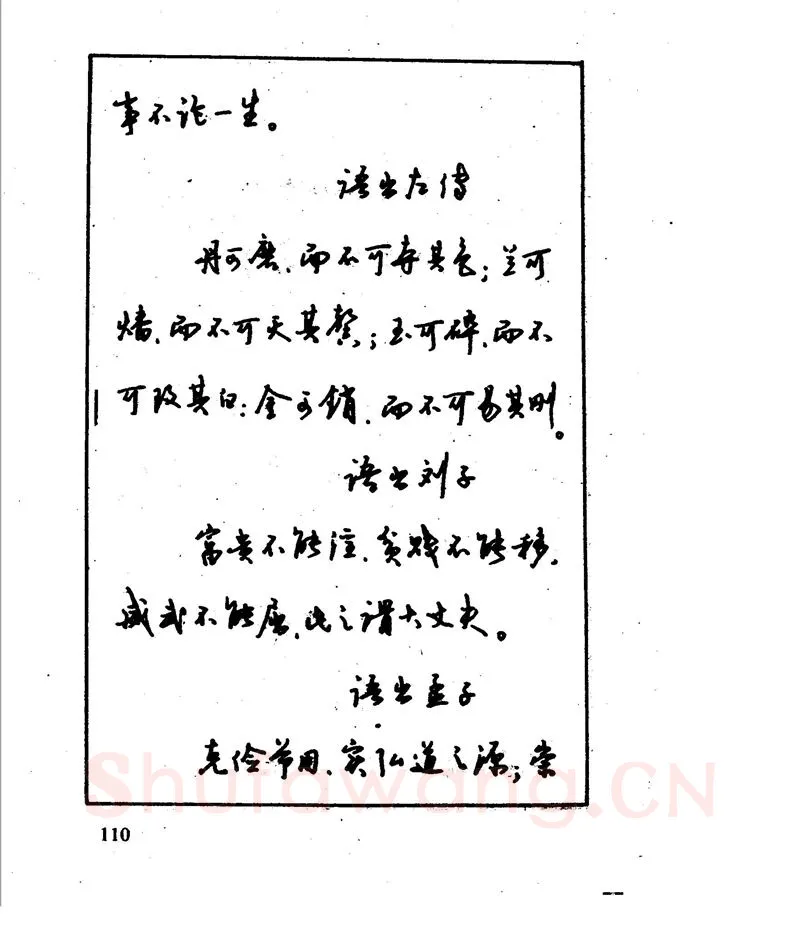 事不论一生。
语出左传
丹可磨,而不可夺其色;兰可
燔,而不可灭其馨;玉可碎,而不
可改其白;金可销,而不可易其刚。
语出刘子
富贵不能淫,贫贱不能移,
威武不能屈,此之谓大丈夫。
语出孟子
克俭节用,实弘道之源;崇
Shufawang.CN
110